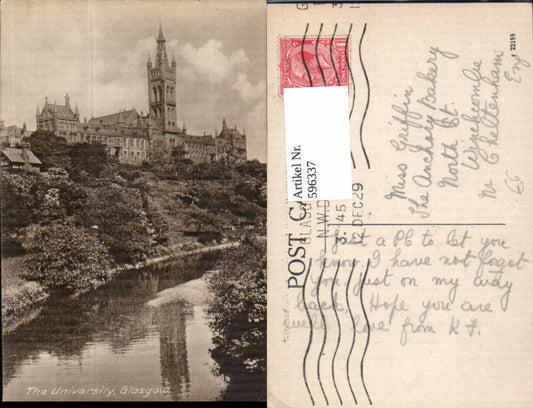 The University, Glasgow.
POST C
GLASG
N.W.D
3 45
12 DEC 29
ONE PENNY
Artikel Nr.
596337
T 22155
Miss Griffin
The Anchery Bakery
North St.
Winchcombe
Nr Cheltenham
Eng
66
Just a PC to let you
know I have not forgot
you just on my way
back, Hope you are
well love from K F.